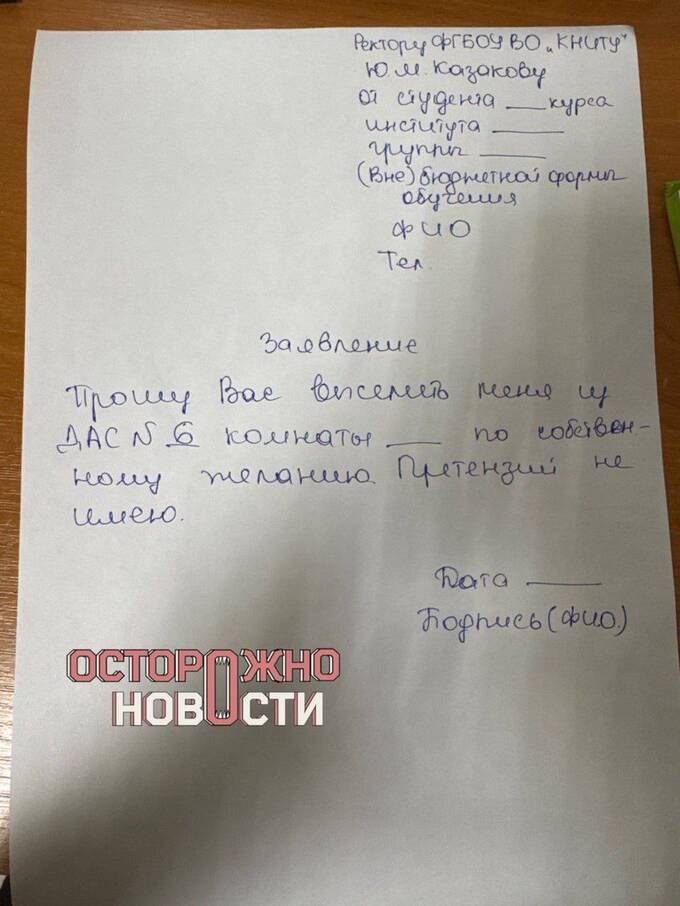 Ректору ФГБОУ ВО „КНИТУ"
Ю.М. Казакову
от студента ___ курса
института ___
группы ___
(Вне) бюджетной формы
обучения
ФИО
Тел.
Заявление
Прошу Вас выселить меня из
ДАС N 6 комнаты ___ по собствен-
ному желанию. Претензий не
имею.
Дата ___
Подпись (ФИО.)
ОСТОРОЖНО
НОВОСТИ